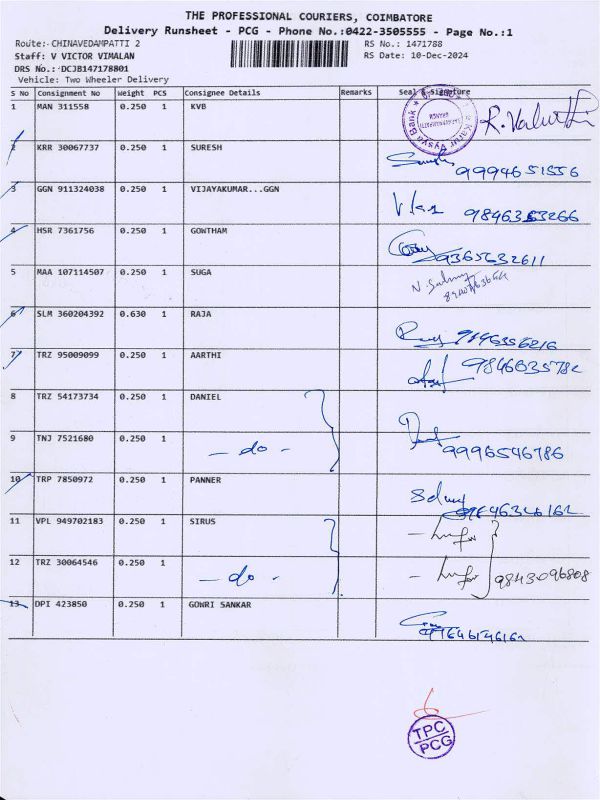 THE PROFESSIONAL COURIERS, COIMBATORE
Delivery Runsheet - PCG - Phone No.:0422-3505555 - Page No.:1
Route: CHINAVEDAMPATTI 2 RS No.: 1471788
Staff: V VICTOR VIMALAN RS Date: 10-Dec-2024
DRS No.: DCJB147178801
Vehicle: Two Wheeler Delivery
S No Consignment No Weight PCS Consignee Details Remarks Seal & Signature
1 MAN 311558 0.250 1 KVB
Karur Vysya Bank
2 KRR 30067737 0.250 1 SURESH
9994651556
3 GGN 911324038 0.250 1 VIJAYAKUMAR...GGN
9846353266
4 HSR 7361756 0.250 1 GOWTHAM
9365632611
5 MAA 107114507 0.250 1 SUGA
6 SLM 360204392 0.630 1 RAJA
7 TRZ 95009099 0.250 1 AARTHI
9846635782
8 TRZ 54173734 0.250 1 DANIEL
9 TNJ 7521680 0.250 1 - do - 9996546786
10 TRP 7850972 0.250 1 PANNER
11 VPL 949702183 0.250 1 SIRUS
12 TRZ 30064546 0.250 1 - do - 9843096808
13 DPI 423850 0.250 1 GOWRI SANKAR
TPC
PCG